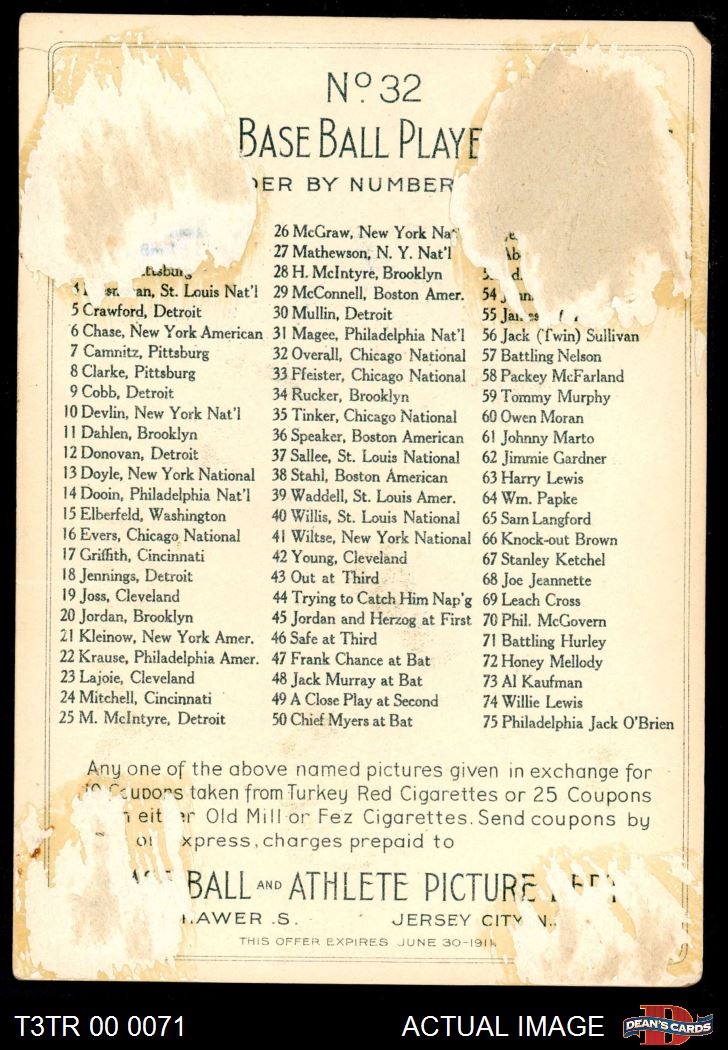 No 32
BASE BALL
BY NUMBER
26 McGraw, New York
27 Mathewson, N. Y. Nat'l
28 H. McIntyre, Brooklyn
St. Louis Nat'l
5 Crawford, Detroit
6 Chase, New York American
7 Camnitz, Pittsburg
8 Clarke, Pittsburg
9 Cobb, Detroit
10 Devlin, New York Nat'l
11 Dahlen, Brooklyn
12 Donovan, Detroit
13 Doyle, New York National
14 Dooin, Philadelphia Nat'l
15 Elberfeld, Washington
16 Evers, Chicago National
17 Griffith, Cincinnati
18 Jennings, Detroit
19 Joss, Cleveland
20 Jordan, Brooklyn
21 Kleinow, New York Amer.
22 Krause, Philadelphia Amer.
23 Lajoie, Cleveland
24 Mitchell, Cincinnati
25 M. McIntyre, Detroit
29 McConnell, Boston Amer.
30 Mullin, Detroit
31 Magee, Philadelphia Nat'l
32 Overall, Chicago National
33 Pfeister, Chicago National
34 Rucker, Brooklyn
35 Tinker, Chicago National
36 Speaker, Boston American
37 Sallee, St. Louis National
38 Stahl, Boston American
39 Waddell, St. Louis Amer.
40 Willis, St. Louis National
41 Wiltse, New York National
42 Young, Cleveland
43 Out at Third
44 Trying to Catch Him Nap'g
45 Jordan and Herzog at First
46 Safe at Third
47 Frank Chance at Bat
48 Jack Murray at Bat
49 A Close Play at Second
50 Chief Myers at Bat
54
55
56 Jack (Twin) Sullivan
57 Battling Nelson
58 Packey McFarland
59 Tommy Murphy
60 Owen Moran
61 Johnny Marto
62 Jimmie Gardner
63 Harry Lewis
64 Wm. Papke
65 Sam Langford
66 Knock-out Brown
67 Stanley Ketchel
68 Joe Jeannette
69 Leach Cross
70 Phil. McGovern
71 Battling Hurley
72 Honey Mellody
73 Al Kaufman
74 Willie Lewis
75 Philadelphia Jack O'Brien
Any one of the above named pictures given in exchange for
Coupons taken from Turkey Red Cigarettes or 25 Coupons
Old Mill or Fez Cigarettes. Send coupons by
charges prepaid to
BALL AND ATHLETE PICTURE
JERSEY CITY
THIS OFFER EXPIRES JUNE 30-1911.
T3TR 00 0071
ACTUAL IMAGE
DEAN'S CARDS